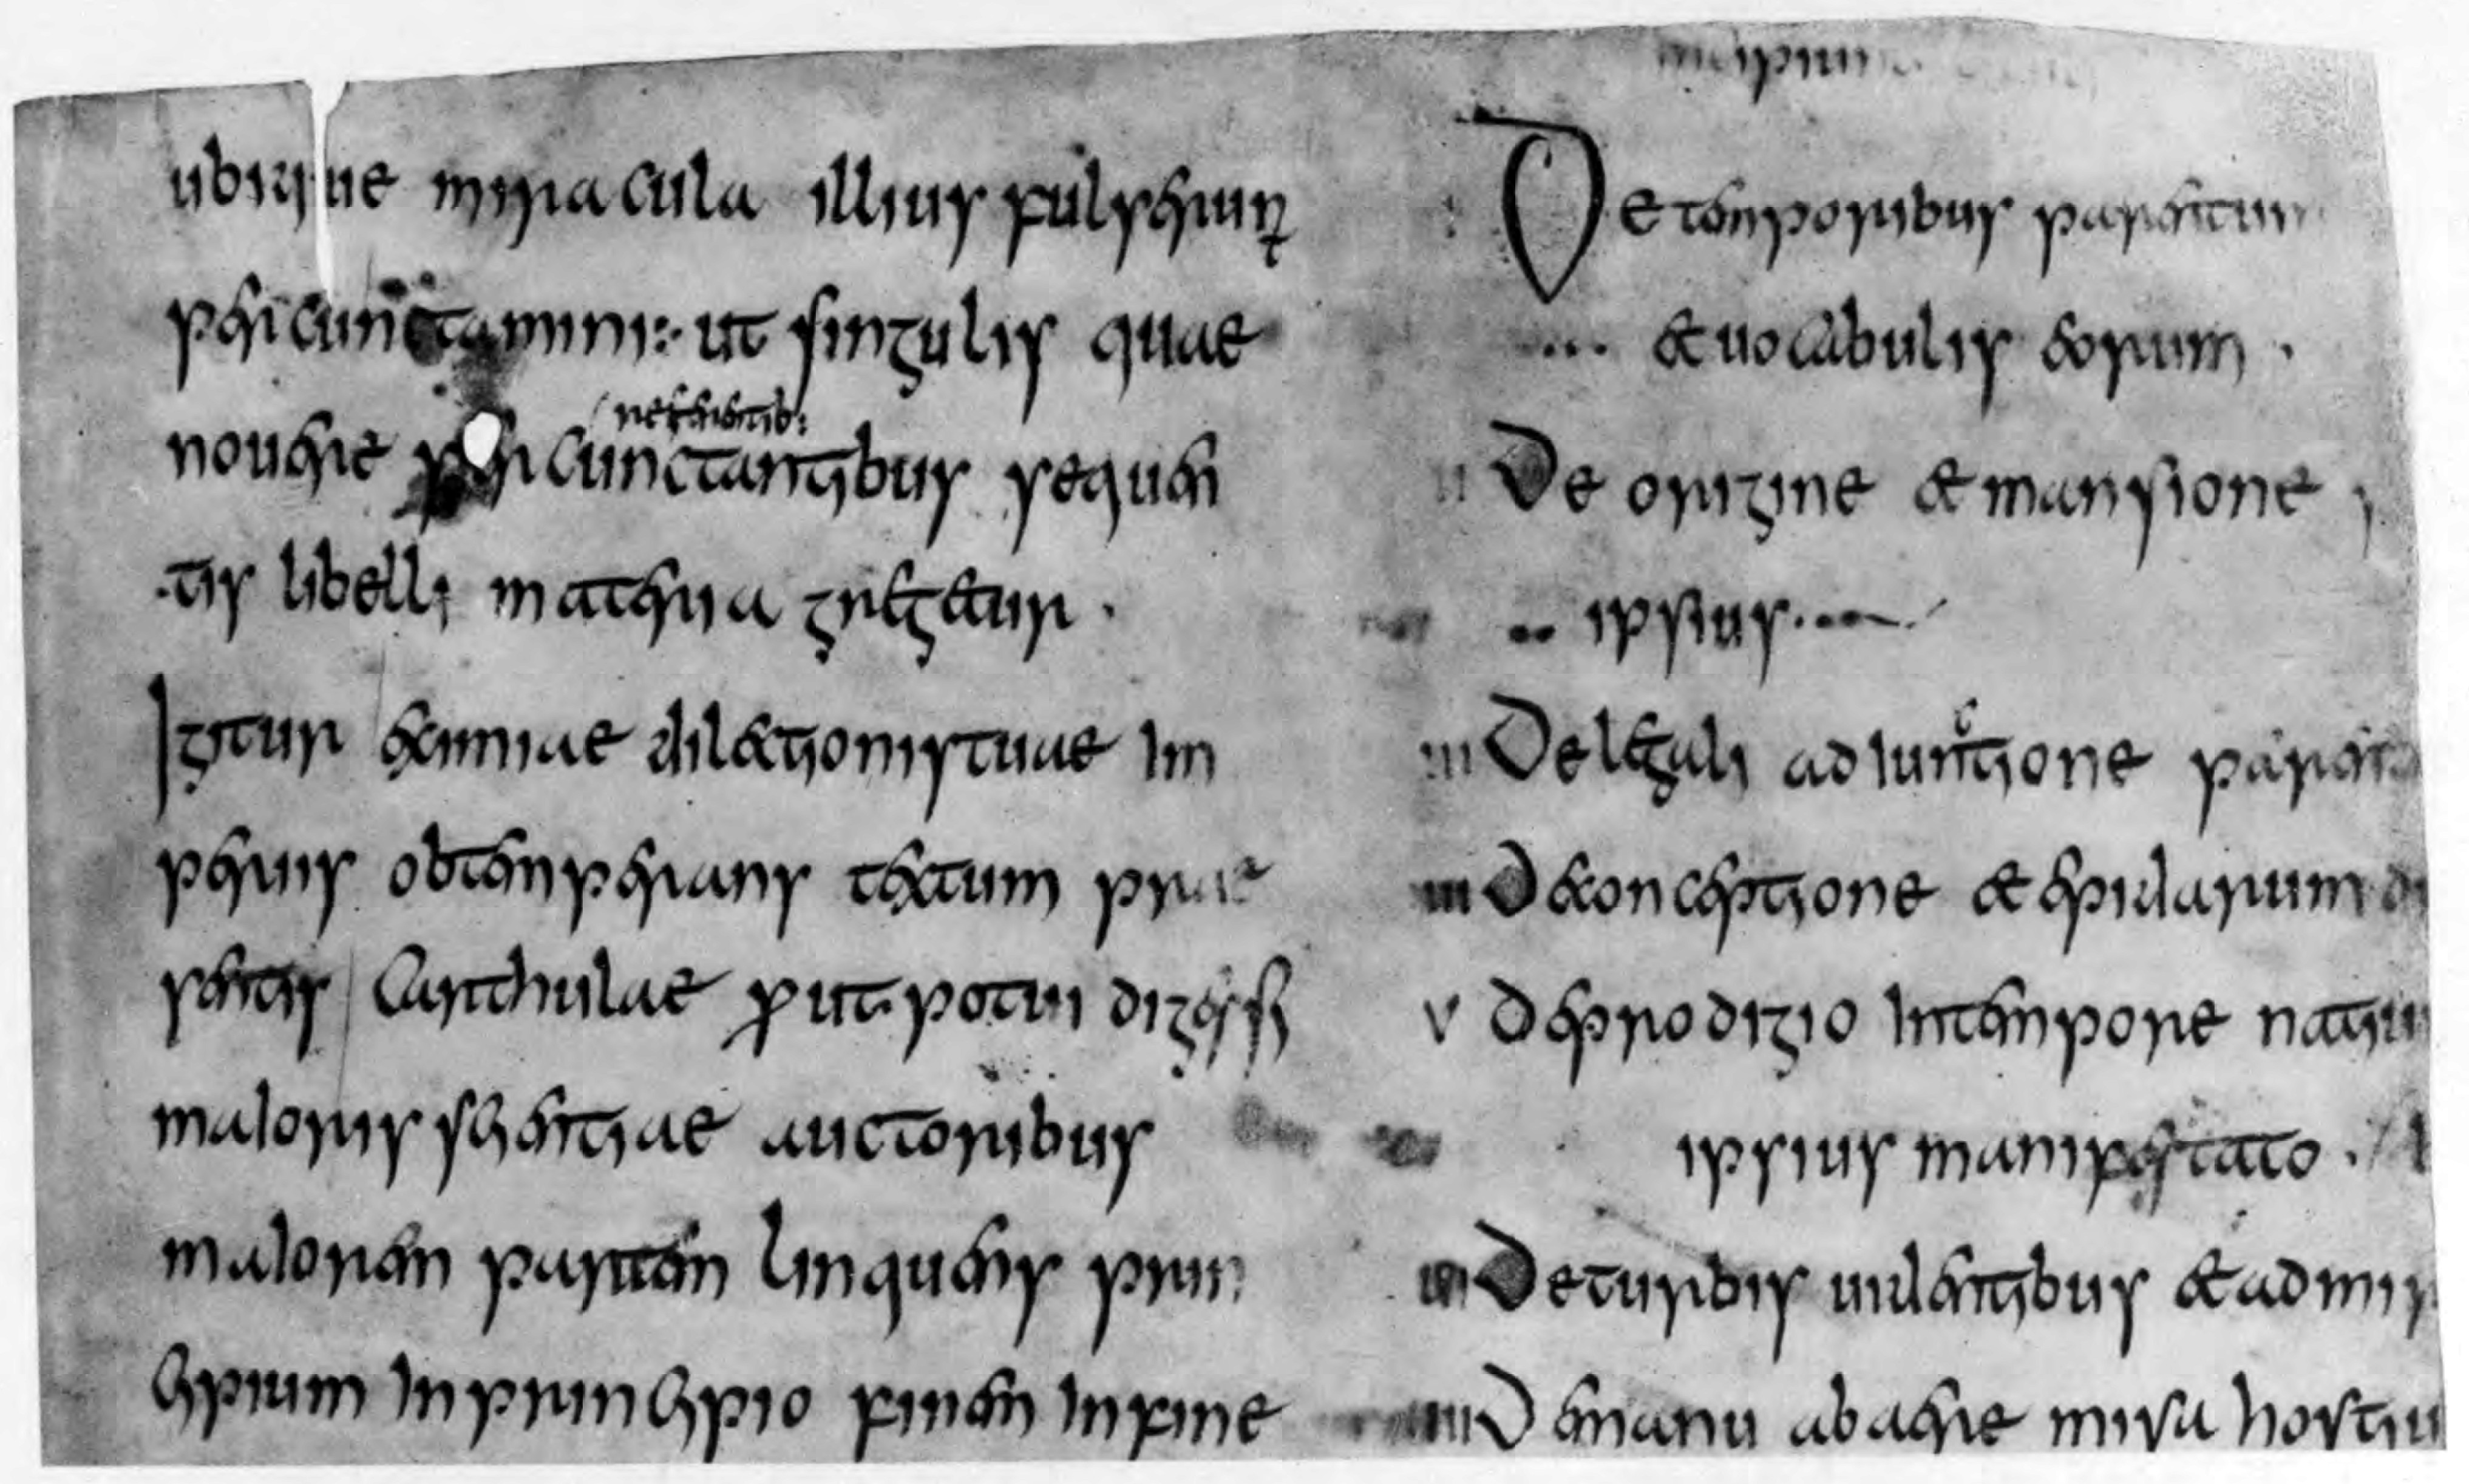 ubique miracula illius fulserunt
pericunctamini:· ut singulis quae
nescientib:
nouere pericunctantibus sequen
·tis libelli materia gregetur .
Igitur eximiae dilectionis tuae im
periis obtemperans textum prae
sentis carthulae prout potui digessi
maioris scientiae auctoribus
maiorem partem linquens prin
cipium in principio finem in fine
De temporibus parentum
... & uocabulis eorum .
ii De origine & mansione
.. ipsius ...
iii De legali adiunctione parent
iiii De conceptione & epularum di
v De prodigio in tempore natiu
ipsius manifestato .
ui De turbis uidentibus & admir
De manu ab aere misa hostiu